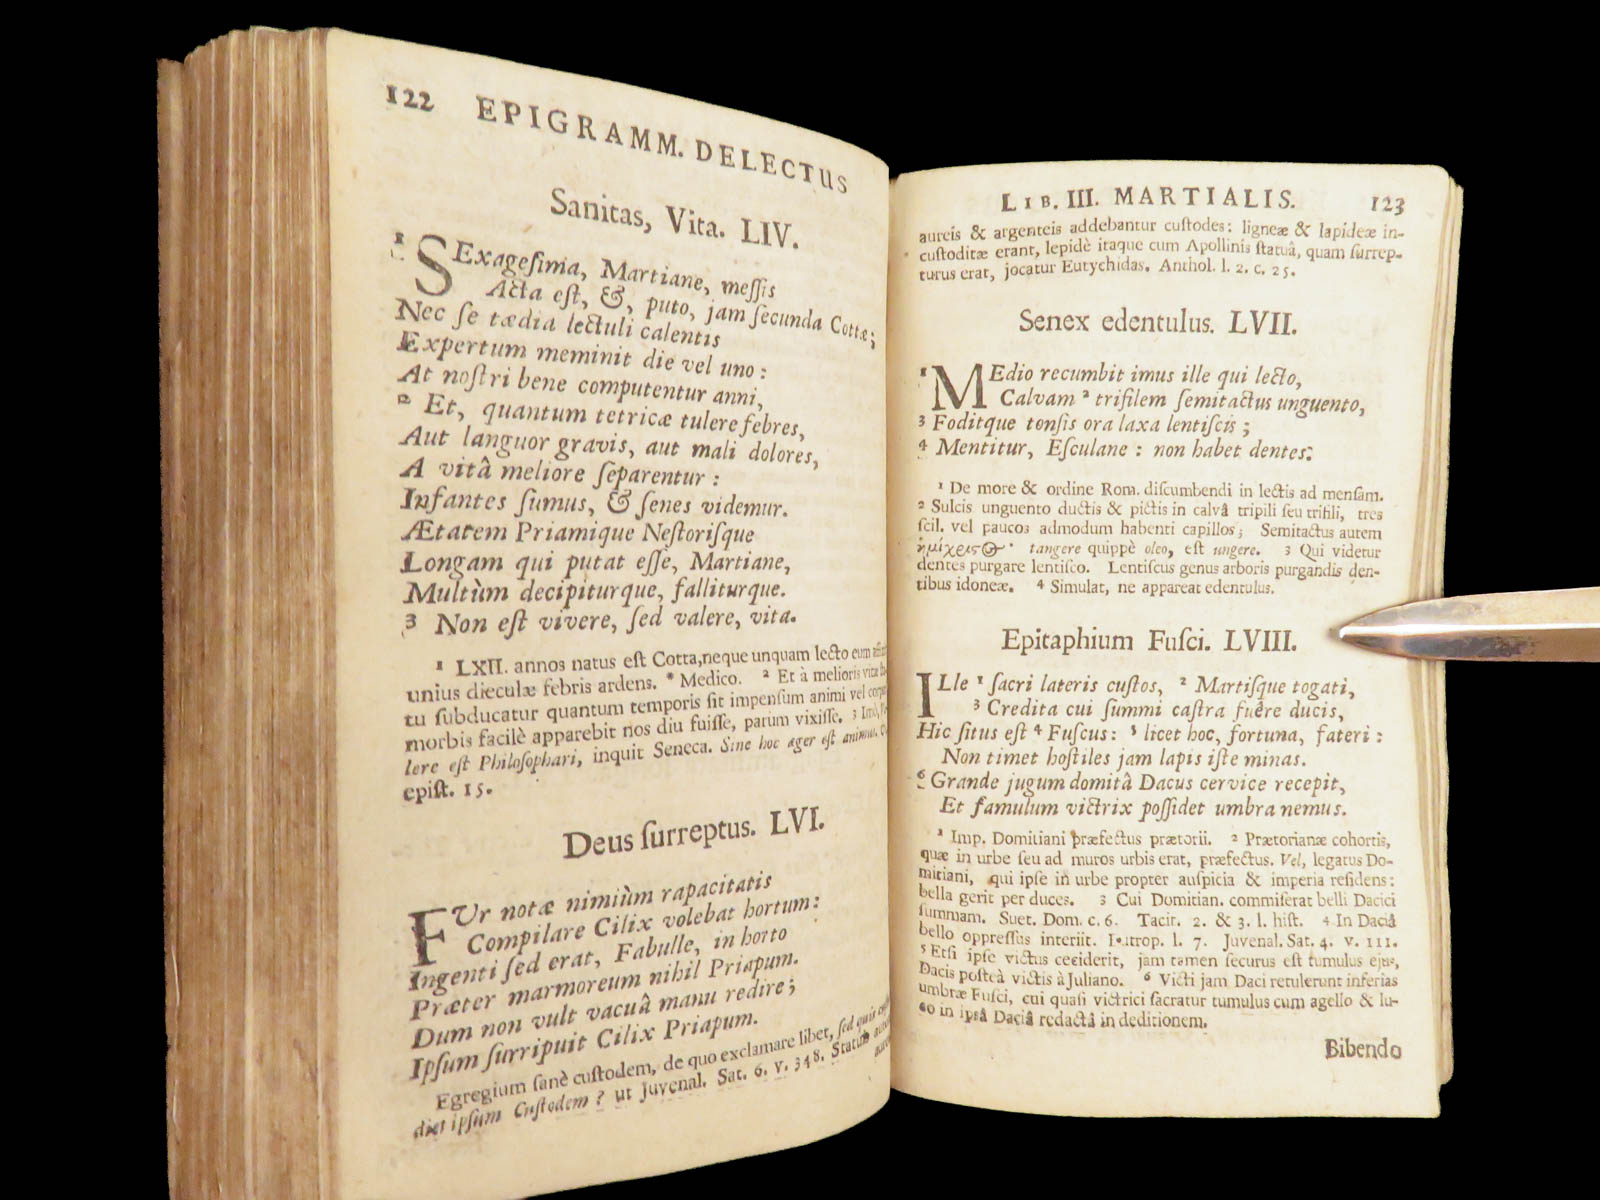 122 EPIGRAMM. DELECTUS
Sanitas, Vita. LIV.
¹ SExageſima, Martiane, meſſis
Acta eſt, &, puto, jam ſecunda Cottæ;
Nec ſe tædia lectuli calentis
Expertum meminit die vel uno:
At noſtri bene computentur anni,
² Et, quantum tetricæ tulere febres,
Aut languor gravis, aut mali dolores,
A vitâ meliore ſeparentur:
Infantes ſumus, & ſenes videmur.
Ætatem Priamique Neſtoriſque
Longam qui putat eſſe, Martiane,
Multùm decipiturque, falliturque.
3 Non eſt vivere, ſed valere, vita.
¹ LXII. annos natus eſt Cotta, neque unquam lecto eum
unius dieculæ febris ardens. * Medico. ² Et à melioris vitæ
tu ſubducatur quantum temporis ſit impenſum animi vel
morbis facilè apparebit nos diu fuiſſe, parum vixiſſe. ³
lere eſt Philoſophari, inquit Seneca. Sine hoc æger eſt animus.
epiſt. 15.
Deus ſurreptus. LVI.
FUr notæ nimiùm rapacitatis
Compilare Cilix volebat hortum:
Ingenti ſed erat, Fabulle, in horto
Præter marmoreum nihil Priapum.
Dum non vult vacuâ manu redire;
Ipſum ſurripuit Cilix Priapum.
Egregium ſanè cuſtodem, de quo exclamare libet, ſed quis
diet ipſum Cuſtodem? ut Juvenal. Sat. 6. v. 348. Statuæ
LIB. III. MARTIALIS. 123
aureis & argenteis addebantur cuſtodes: ligneæ & lapideæ in-
cuſtoditæ erant, lepidè itaque cum Apollinis ſtatuâ, quam ſurrep-
turus erat, jocatur Eutychidas. Anthol. l. 2. c. 25.
Senex edentulus. LVII.
¹ MEdio recumbit imus ille qui lecto,
Calvam ² trifilem ſemitactus unguento,
3 Foditque tonſis ora laxa lentiſcis;
4 Mentitur, Eſculane: non habet dentes.
¹ De more & ordine Rom. diſcumbendi in lectis ad menſam.
² Sulcis unguento ductis & pictis in calvâ tripili ſeu trifili, tres
ſcil. vel paucos admodum habenti capillos; Semitactus autem
ἡμίχειϛΘ· tangere quippè oleo, eſt ungere. 3 Qui videtur
dentes purgare lentiſco. Lentiſcus genus arboris purgandis den-
tibus idoneæ. 4 Simulat, ne appareat edentulus.
Epitaphium Fuſci. LVIII.
ILle ¹ ſacri lateris cuſtos, ² Martiſque togati,
3 Credita cui ſummi caſtra fuêre ducis,
Hic ſitus eſt 4 Fuſcus: 5 licet hoc, fortuna, fateri:
Non timet hoſtiles jam lapis iſte minas.
6 Grande jugum domitâ Dacus cervice recepit,
Et famulum victrix poſſidet umbra nemus.
¹ Imp. Domitiani præfectus prætorii. ² Prætorianæ cohortis,
quæ in urbe ſeu ad muros urbis erat, præfectus. Vel, legatus Do-
mitiani, qui ipſe in urbe propter auſpicia & imperia reſidens:
bella gerit per duces. 3 Cui Domitian. commiſerat belli Dacici
ſummam. Suet. Dom. c. 6. Tacit. 2. & 3. l. hiſt. 4 In Daciâ
bello oppreſſus interiit. Eutrop. l. 7. Juvenal. Sat. 4. v. 111.
5 Etſi ipſe victus ceciderit, jam tamen ſecurus eſt tumulus ejus,
Dacis poſteà victis à Juliano. 6 Victi jam Daci retulerunt inferias
umbræ Fuſci, cui quaſi victrici ſacratur tumulus cum agello & lu-
co in ipsâ Daciâ redactâ in deditionem.
Bibendo